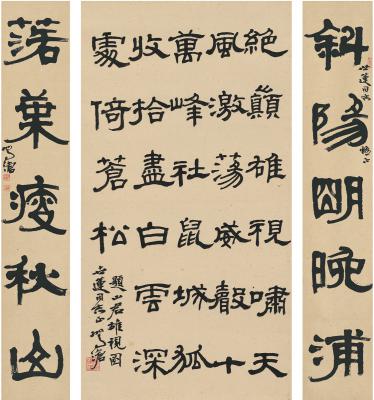 斜陽明晚浦
世蓬同志
正
絕巔雄視嘯天
風激蕩威聲十
萬峰社鼠城狐
收拾盡白雲深
處倚蒼松
題山君雄視圖
世蓬同志正
落葉瘦秋山